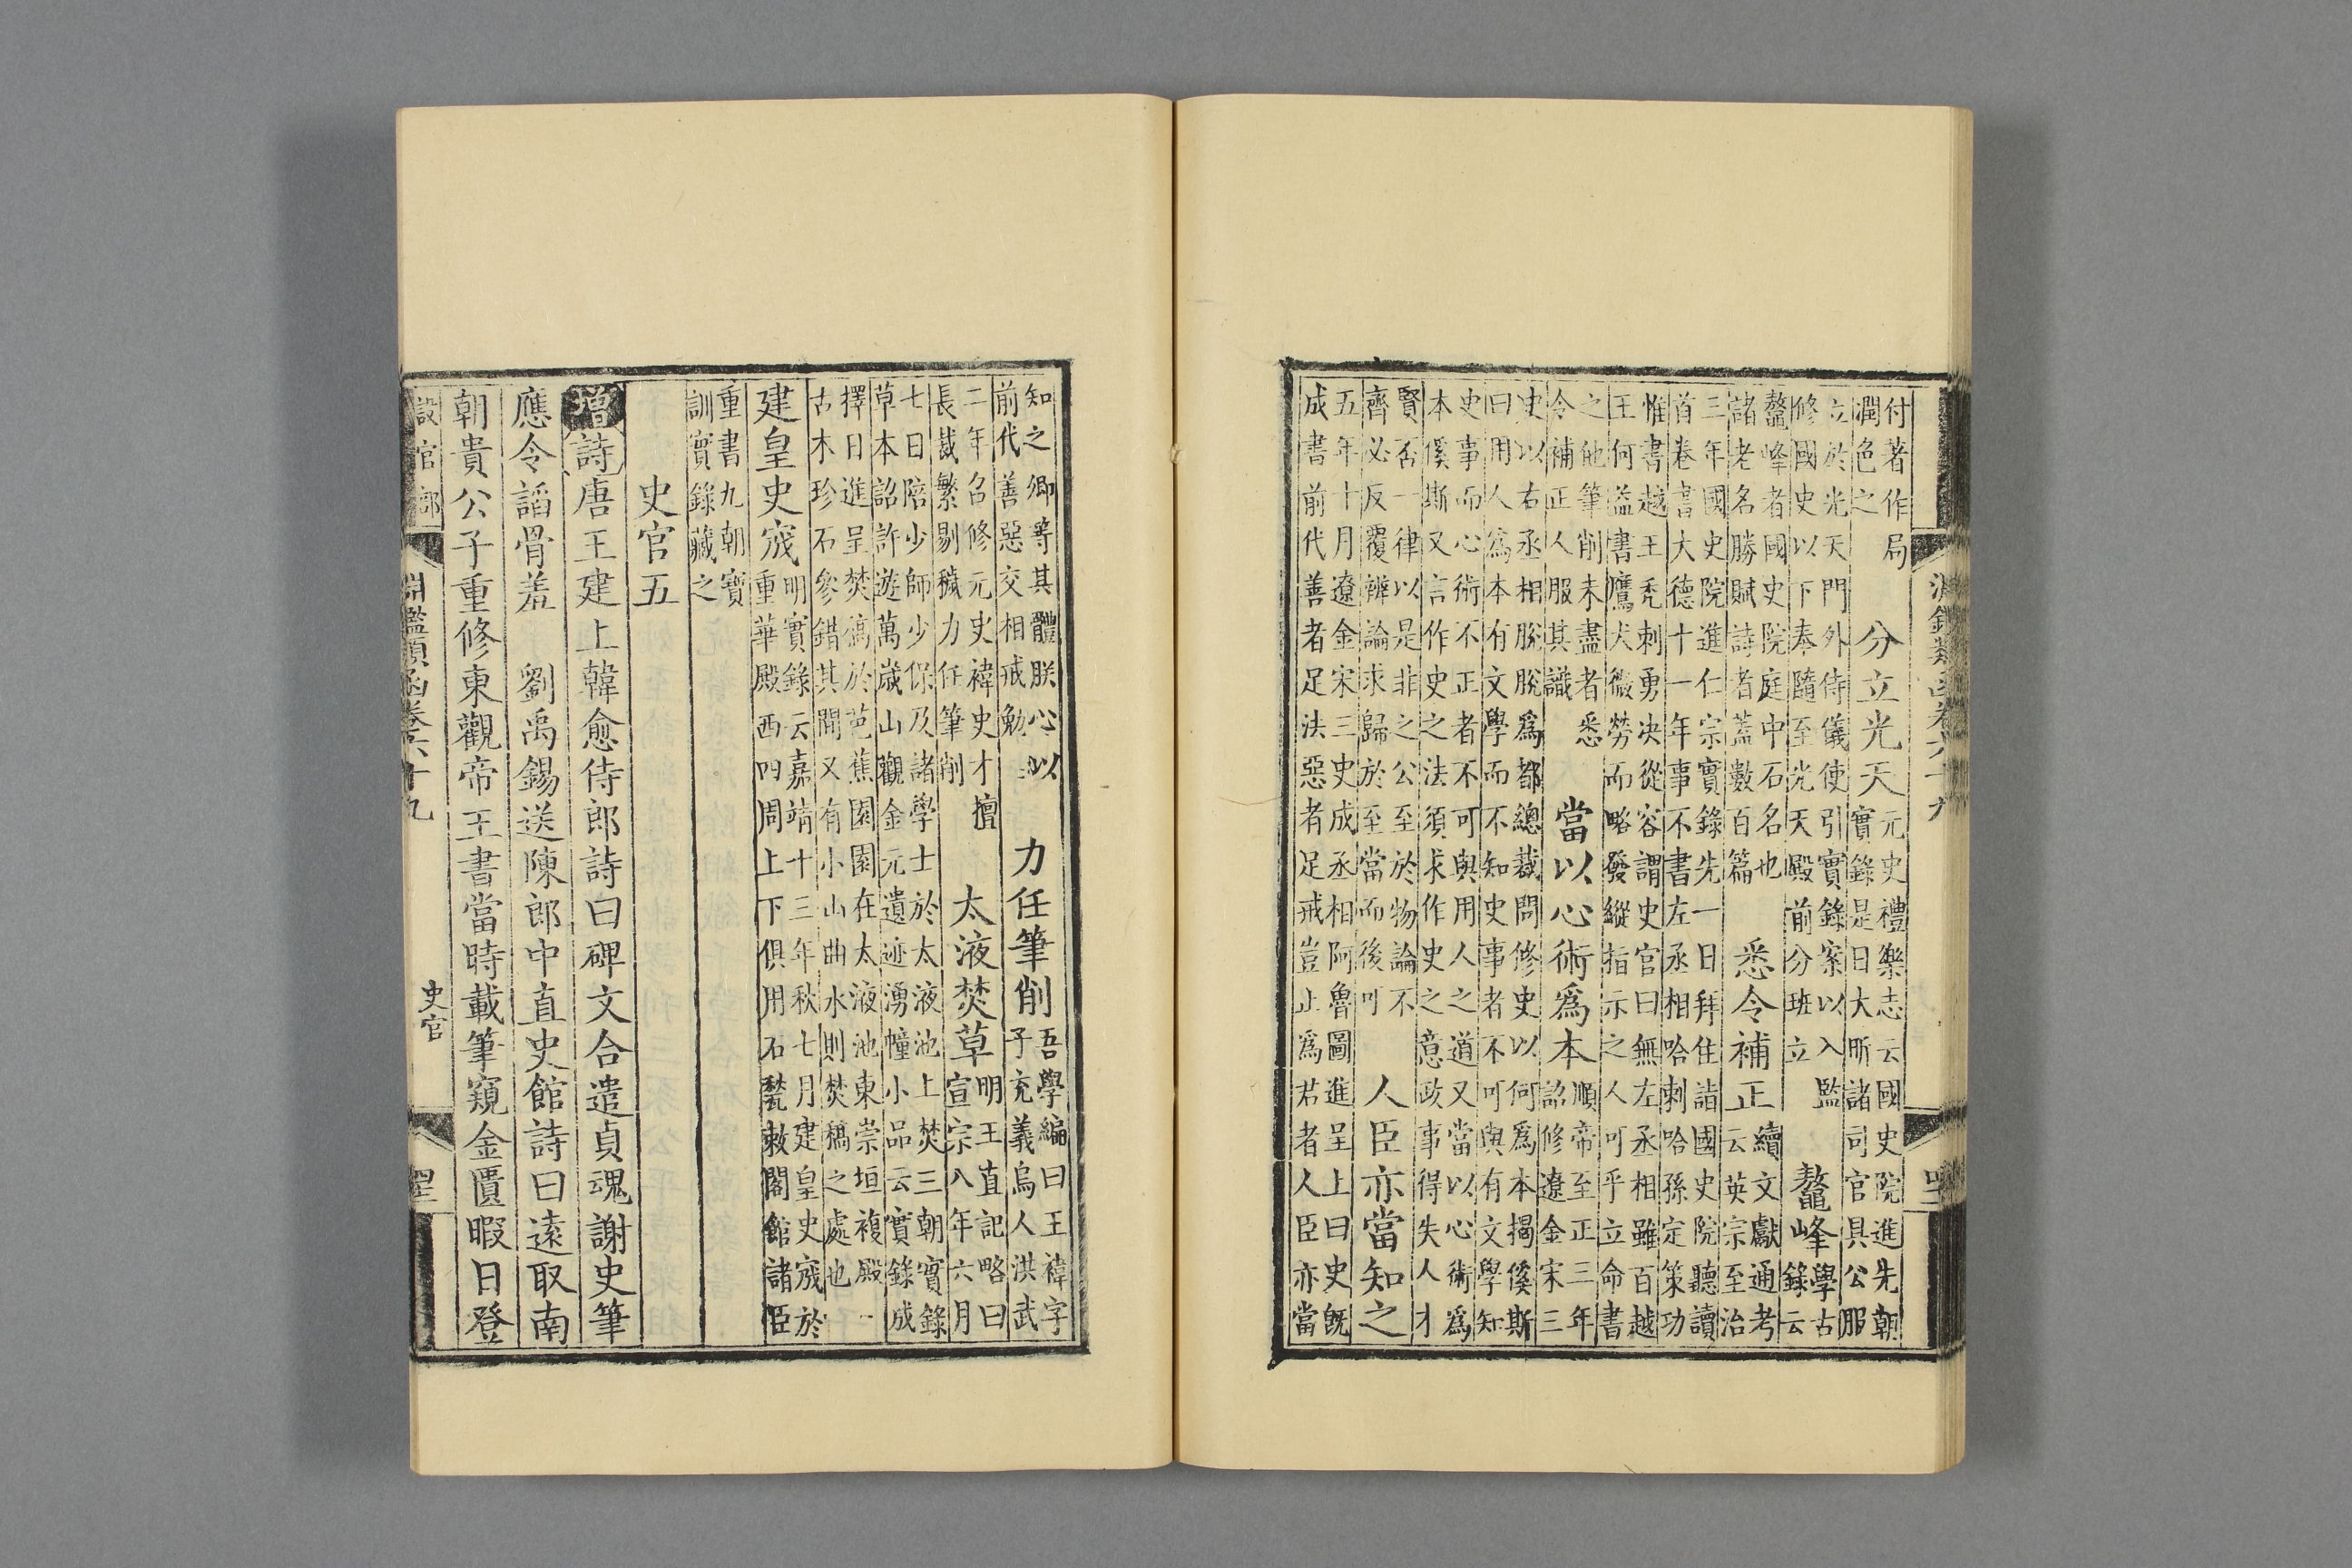 淵鑑類函卷六十九
付著作局
潤色之
分立光天
元史禮樂志云國史院進先朝
實錄是日大昕諸司官具公服
立於光天門外侍儀使引實錄案以入監
修國史以下奉隨至光天殿前分班立
鼇峰
學古
錄云
鼇峰者國史院庭中石名也
諸老名勝賦詩者蓋數百篇
悉令補正
續文獻通考
云英宗至治
三年國史院進仁宗實錄先一日拜住詣國史院聽讀
首卷書大德十一年事不書左丞相哈剌哈孫定策功
惟書越王禿剌勇決從容謂史官曰無左丞相雖百越
王何益書鷹犬微勞而略發縱指示之人可乎立命書
之他筆削未盡者悉
令補正人服其識
當以心術爲本
順帝至正三年
詔修遼金宋三
史以右丞相脫脫爲都總裁問修史以何爲本揭傒斯
曰用人爲本有文學而不知史事者不可與有文學知
史事而心術不正者不可與用人之道又當以心術爲
本傒斯又言作史之法須求作史之意政事得失人才
賢否一律以是非之公至於物論不
齊必反覆辨論求歸於至當而後可
人臣亦當知之
五年十月遼金宋三史成丞相阿魯圖進呈上曰史旣
成書前代善者足法惡者足戒豈止爲君者人臣亦當
知之卿等其體朕心以
前代善惡交相戒勉
力任筆削
吾學編曰王褘字
子充義烏人洪武
二年召修元史褘史才擅
長裁繁剔穢力任筆削
太液焚草
明王直記略曰
宣宗八年六月
七日陪少師少保及諸學士於太液池上焚三朝實錄
草本詔許遊萬歲山觀金元遺迹湧幢小品云實錄成
擇日進呈焚稿於芭蕉園園在太液池東崇垣複殿
古木珍石參錯其間又有小山曲水則焚稿之處也
建皇史宬
明實錄云嘉靖十三年秋七月建皇史宬於
重華殿西四周上下俱用石甃敕閣館諸臣
重書九朝寶
訓實錄藏之
史官五
增詩唐王建上韓愈侍郎詩曰碑文合遣貞魂謝史筆
應令諂骨羞　劉禹錫送陳郎中直史館詩曰遠取南
朝貴公子重修東觀帝王書當時載筆窺金匱暇日登
設官部
淵鑑類函卷六十九
史官